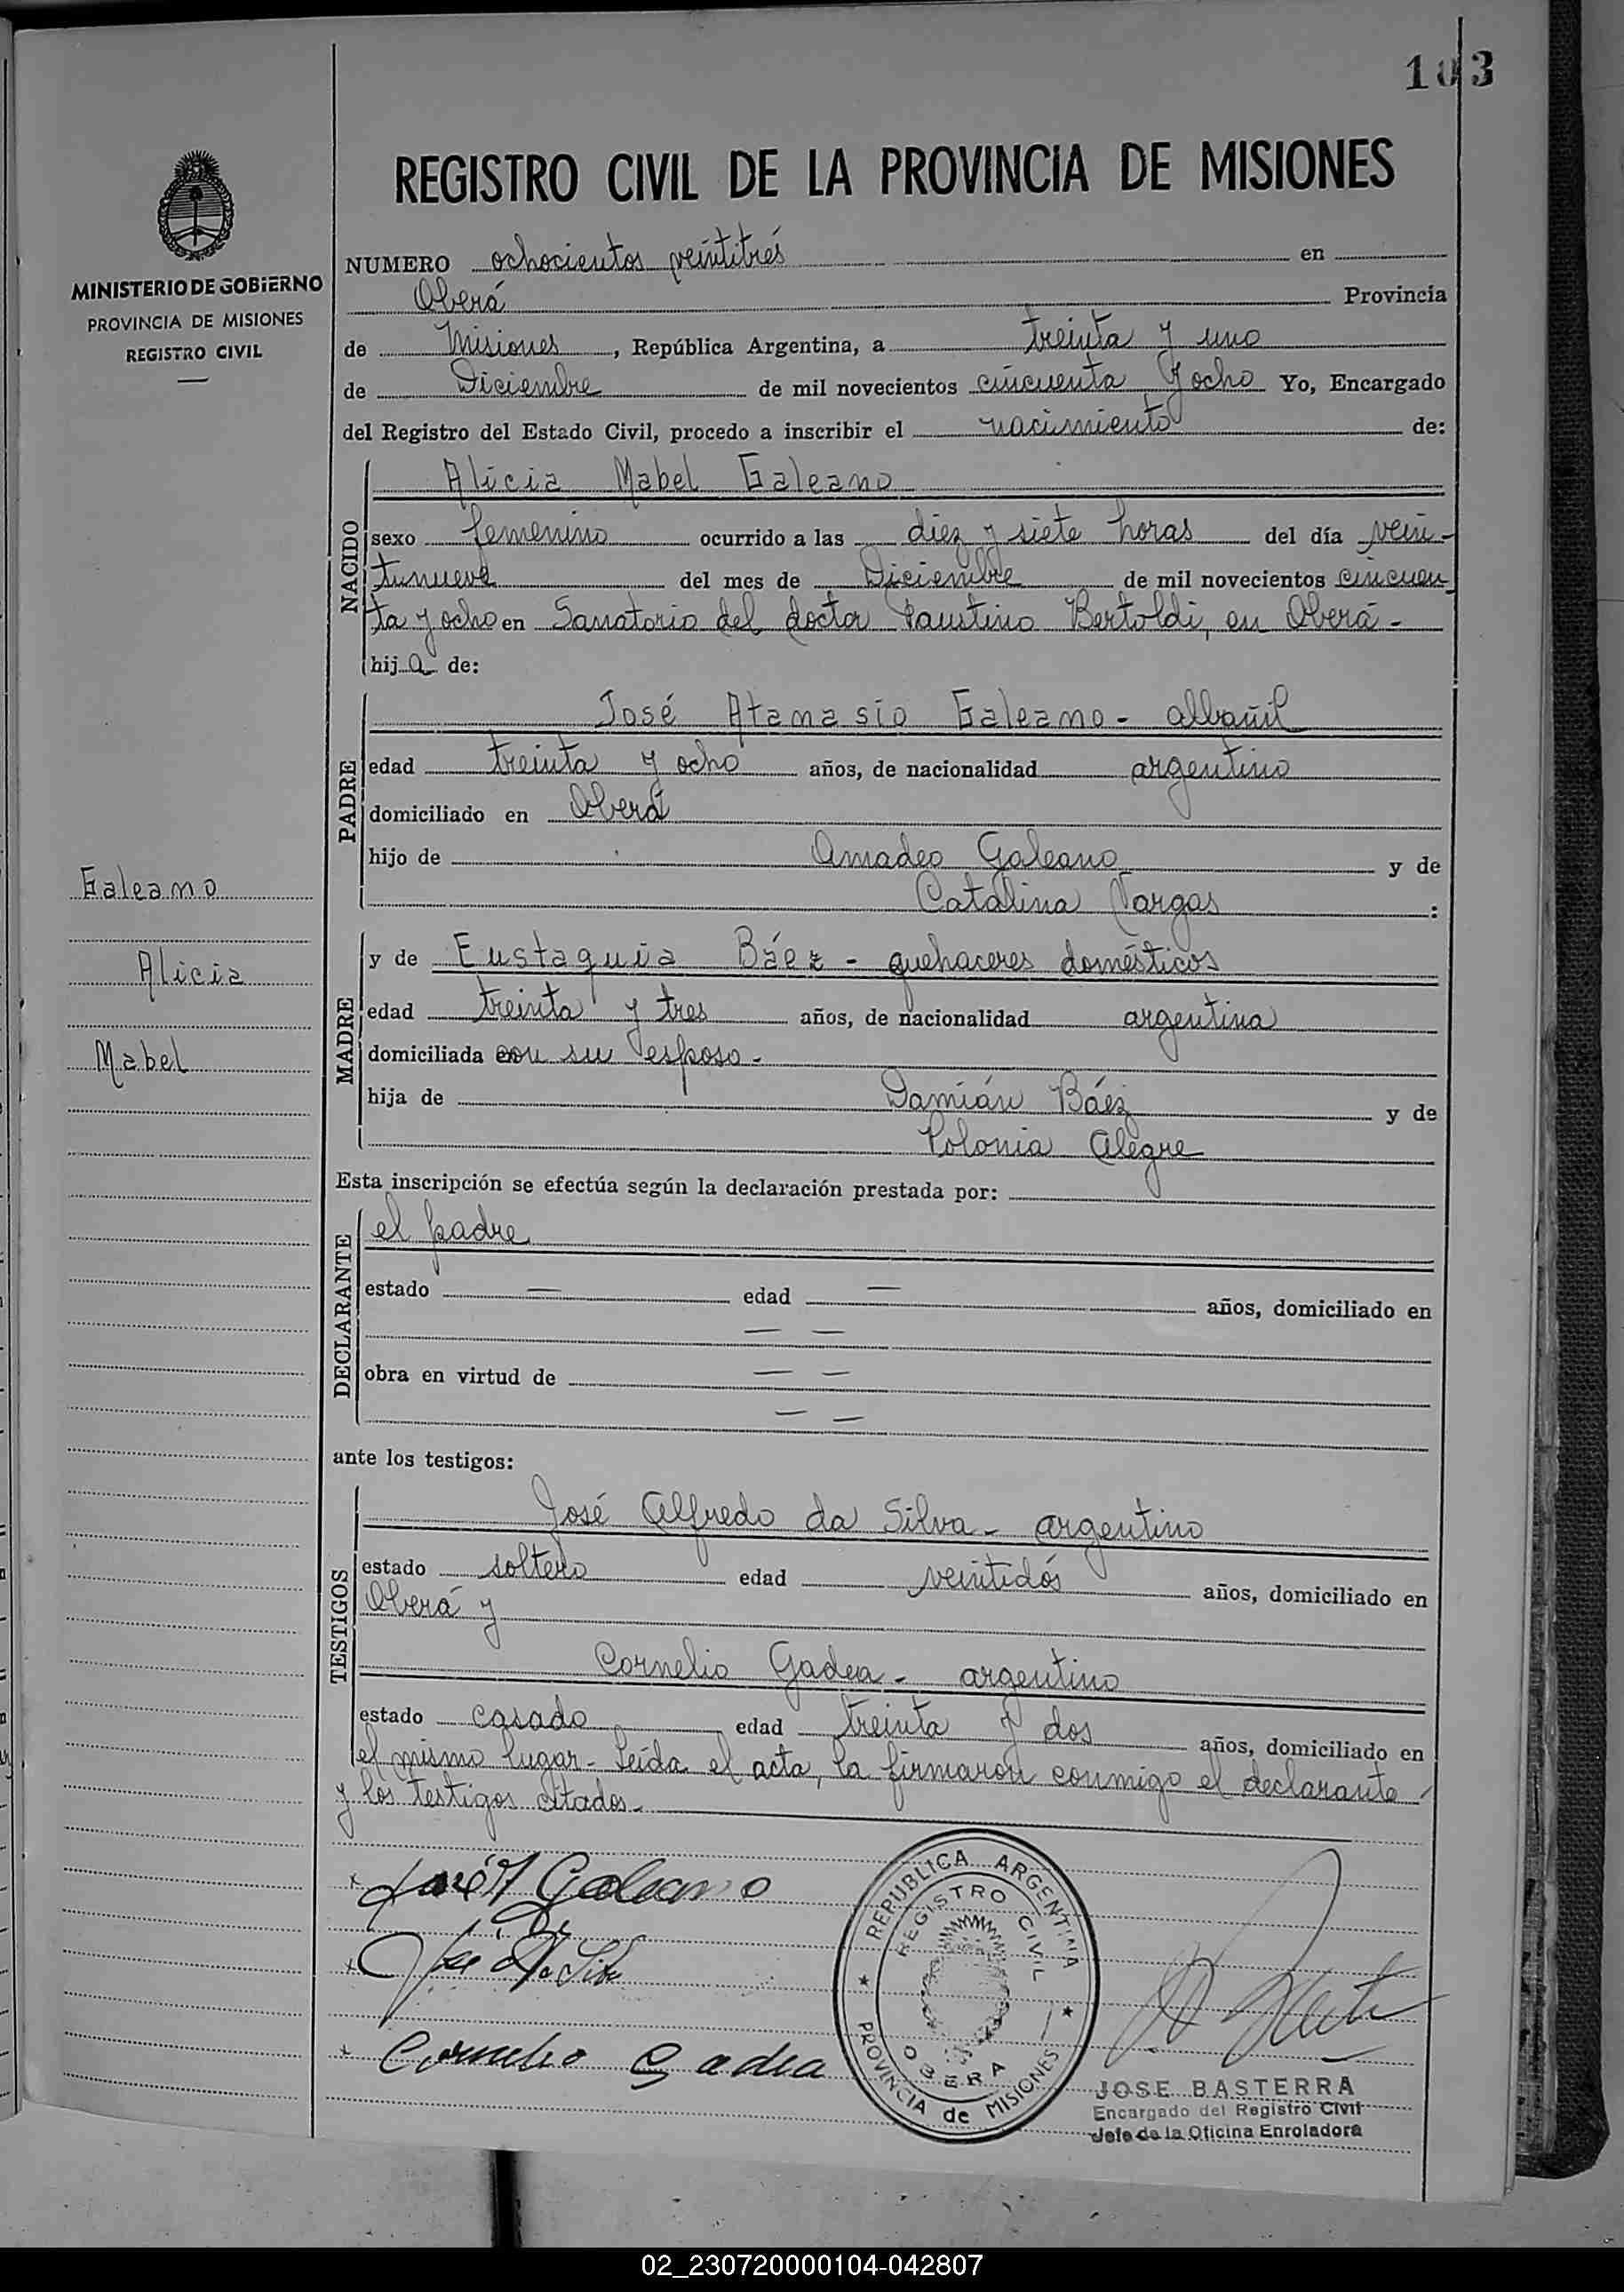 103
REGISTRO CIVIL DE LA PROVINCIA DE MISIONES
MINISTERIO DE GOBIERNO
PROVINCIA DE MISIONES
REGISTRO CIVIL
NUMERO ochocientos veintitrés en
Oberá Provincia
de Misiones, República Argentina, a treinta y uno
de Diciembre de mil novecientos cincuenta y ocho Yo, Encargado
del Registro del Estado Civil, procedo a inscribir el nacimiento de:
NACIDO
Alicia Mabel Galeano
sexo femenino ocurrido a las diez y siete horas del día vein-
tinueve del mes de Diciembre de mil novecientos cincuen
ta y ocho en Sanatorio del doctor Faustino Bertoldi, en Oberá-
hija de:
PADRE
José Atanasio Galeano - albañil
edad treinta y ocho años, de nacionalidad argentino
domiciliado en Oberá
hijo de Amadeo Galeano y de
Catalina Vargas :
Galeano
Alicia
Mabel
MADRE
y de Eustaquia Báez - quehaceres domésticos
edad treinta y tres años, de nacionalidad argentina
domiciliada con su esposo.
hija de Damián Báez y de
Polonia Alegre
Esta inscripción se efectúa según la declaración prestada por:
DECLARANTE
el padre
estado — edad — años, domiciliado en
— —
obra en virtud de — —
— —
ante los testigos:
TESTIGOS
José Alfredo da Silva - argentino
estado soltero edad veintidós años, domiciliado en
Oberá y
Cornelio Gadea - argentino
estado casado edad treinta y dos años, domiciliado en
el mismo lugar - Leída el acta, la firmaron conmigo el declarante
y los testigos citados.
José A Galeano
Cornelio Gadea
REPUBLICA ARGENTINA
REGISTRO CIVIL
OBERA
PROVINCIA de MISIONES
JOSE BASTERRA
Encargado del Registro Civil
Jefe de la Oficina Enroladora
02_230720000104-042807